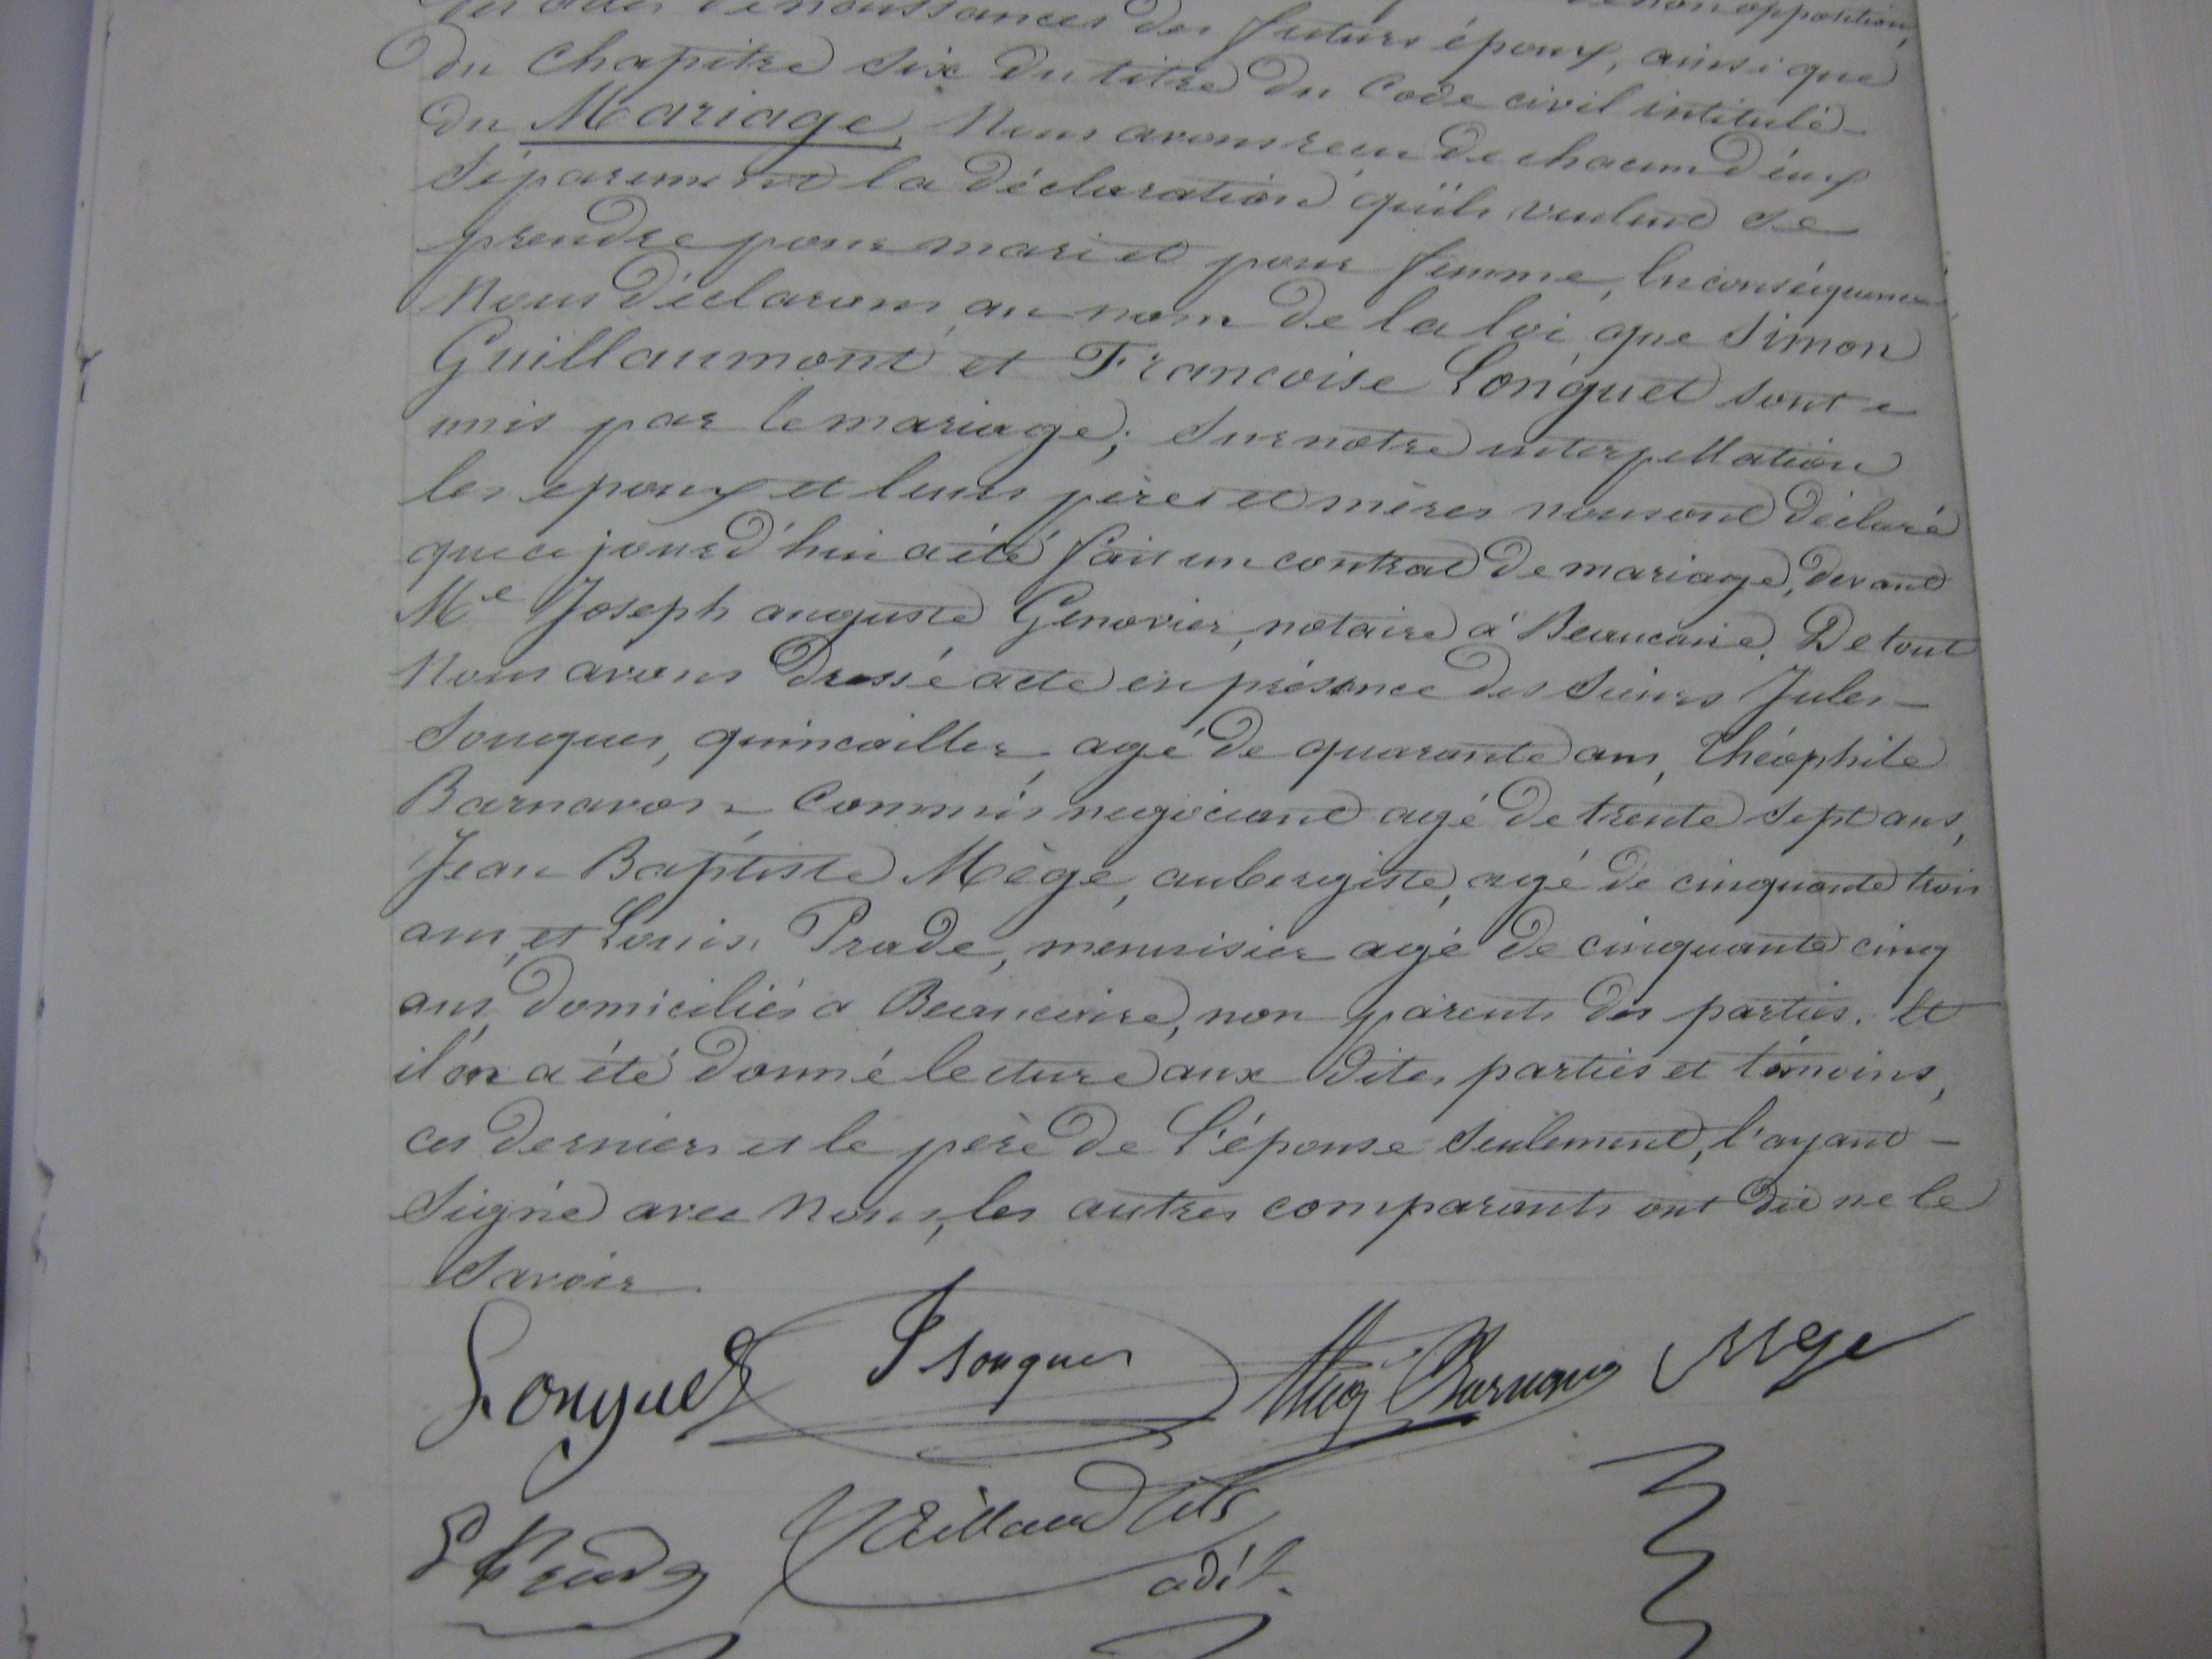 des actes de naissances des futurs époux, ainsi que de non opposition,
du Chapitre six du titre du Code civil intitulé -
du Mariage, Nous avons reçu de chacun d'éux
séparement la déclaration qu'ils veulent se
prendre pour mari et pour femme, En conséquence
Nous déclarons au nom de la loi que Simon
Guillaumont et Francoise Longuet sont -
unis par le mariage; Sur notre interpellation
les epoux et leurs pères et mères nous ont déclaré
que ce jourd'hui a été fait un contrat de mariage, devant
Me Joseph auguste Genovier, notaire à Beaucaire. De tout
Nous avons dressé acte en présence des Sieurs Jules -
Souques, quincailler agé de quarante ans, Théophile
Barnavon - Commis negociant agé de trente sept ans,
Jean Baptiste Mège, aubergiste, agé de cinquante trois
ans, et Louis Prade, menuisier agé de cinquante cinq
ans domiciliés a Beaucaire, non parents des parties. Et
il en a été donné lecture aux dites parties et témoins,
ces derniers et le père de l'épouse seulement, l'ayant -
Signé avec Nous, les autres comparants ont dit ne le
Savoir.
Longuet J Souques Barnavon Mège
L Prade fils
adjt.